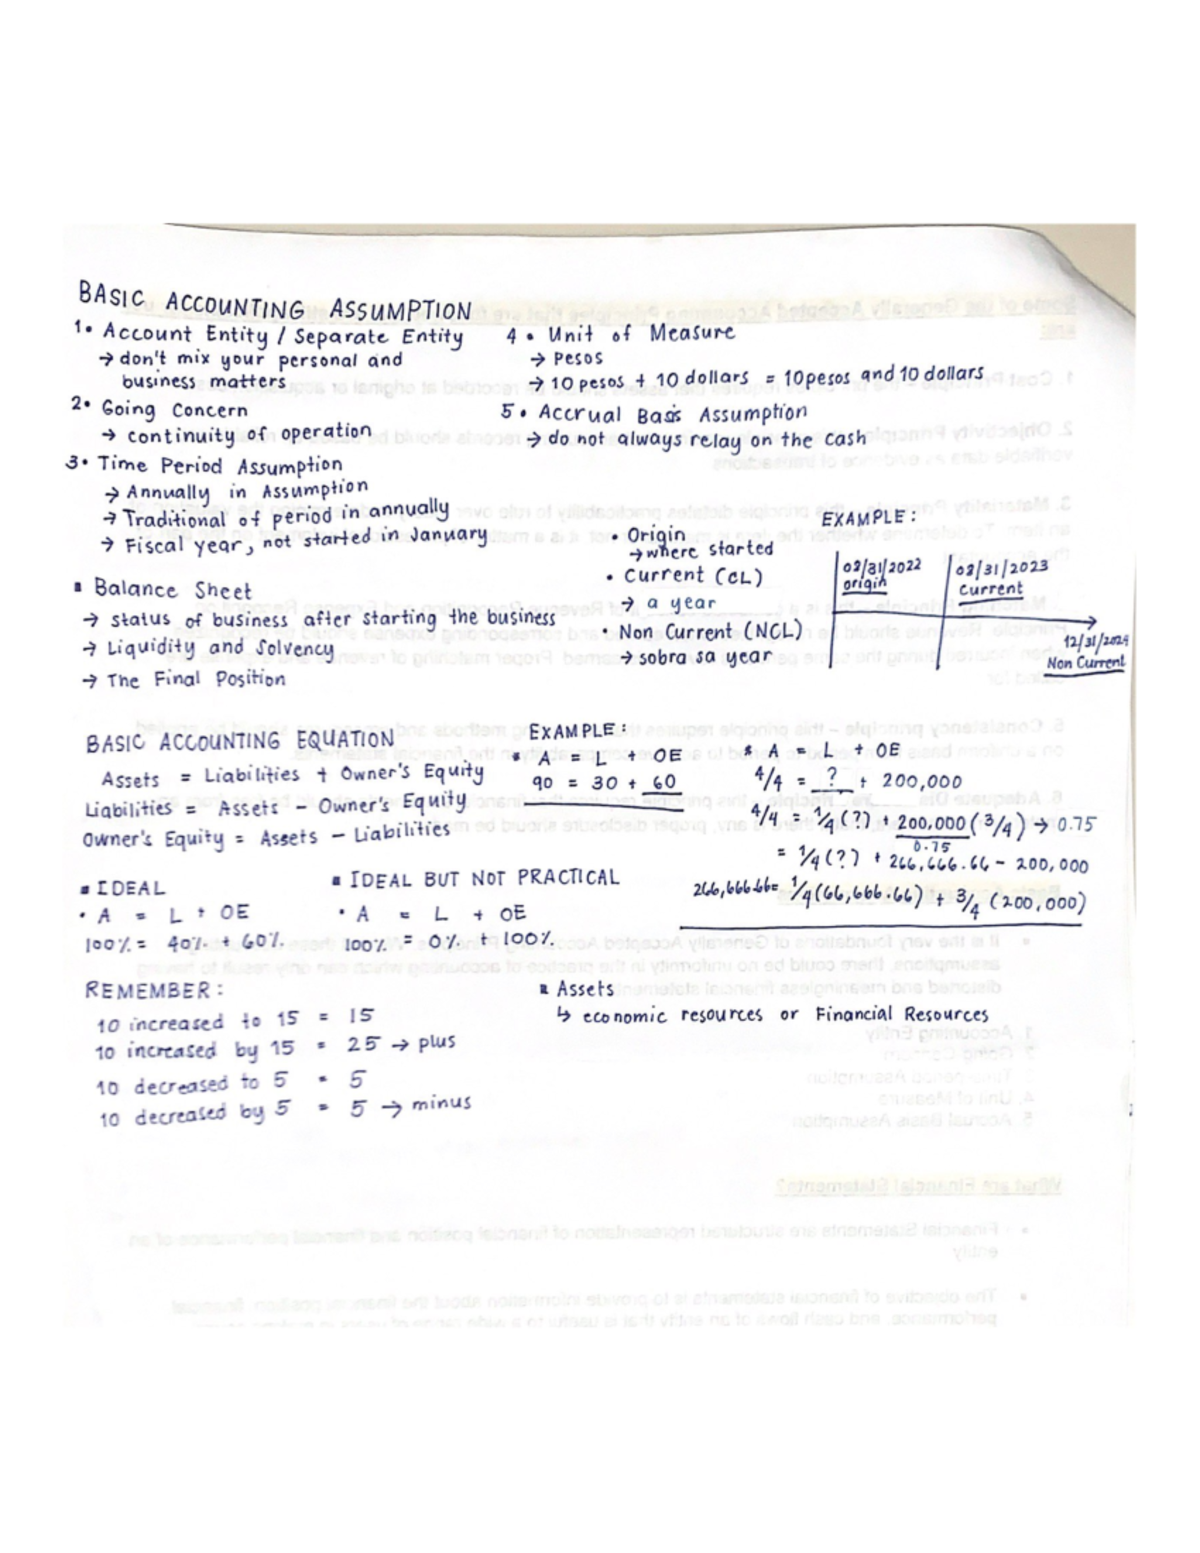 BASIC ACCOUNTING ASSUMPTION
1• Account Entity / Separate Entity
→ don't mix your personal and
business matters
2• Going Concern
→ continuity of operation
3• Time Period Assumption
→ Annually in Assumption
→ Traditional of period in annually
→ Fiscal year, not started in January
4• Unit of Measure
→ Pesos
→ 10 pesos + 10 dollars = 10 pesos and 10 dollars
5• Accrual Basis Assumption
→ do not always relay on the cash
▪ Balance Sheet
→ status of business after starting the business
→ Liquidity and Solvency
→ The Final Position
• Origin
→ where started
• Current (CL)
→ a year
• Non Current (NCL)
→ sobra sa year
EXAMPLE:
08/31/2022
origin
08/31/2023
Current
12/31/2024
Non Current
BASIC ACCOUNTING EQUATION
Assets = Liabilities + Owner's Equity
Liabilities = Assets - Owner's Equity
Owner's Equity = Assets - Liabilities
EXAMPLE:
• A = L + OE
90 = 30 + 60
* A = L + OE
4/4 = ? + 200,000
4/4 = 1/4 (?) + 200,000 (3/4) → 0.75
0.75
= 1/4 (?) + 266,666.66 - 200,000
266,666.66 = 1/4 (66,666.66) + 3/4 (200,000)
▪ IDEAL
• A = L + OE
100% = 40% + 60%
▪ IDEAL BUT NOT PRACTICAL
• A = L + OE
100% = 0% + 100%
REMEMBER:
10 increased to 15 = 15
10 increased by 15 = 25 → plus
10 decreased to 5 = 5
10 decreased by 5 = 5 → minus
▪ Assets
↳ economic resources or Financial Resources